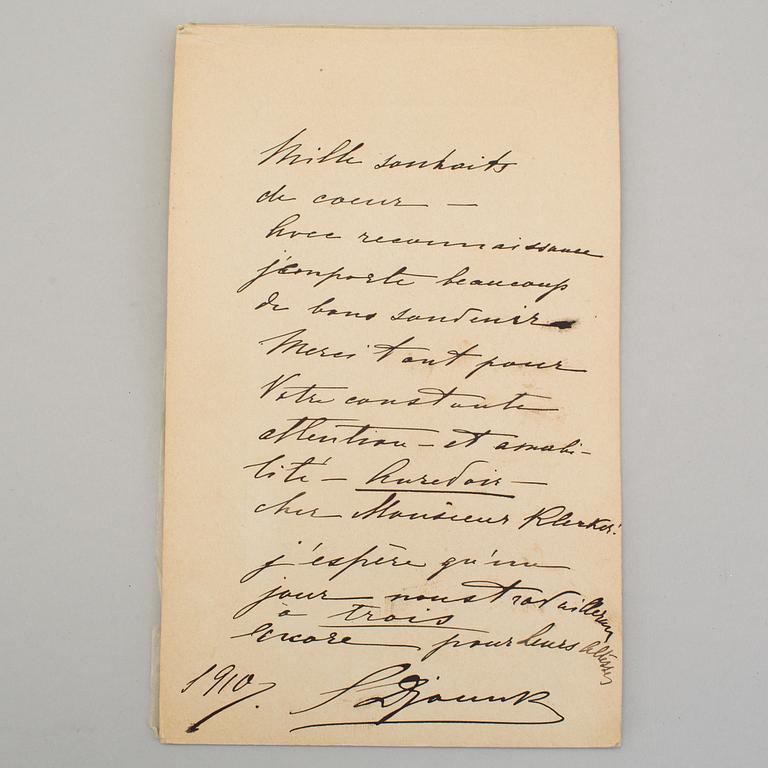 Mille souhaits
de coeur —
Avec reconnaissance
j'emporte beaucoup
de bons souvenir
Merci tant pour
Votre constante
attention — et amabi-
lité — Aurevoir —
cher Monsieur Klerker!
j'espère qu'un
jour nous travaillerons
à trois
encore pour leurs Altesses
1910.